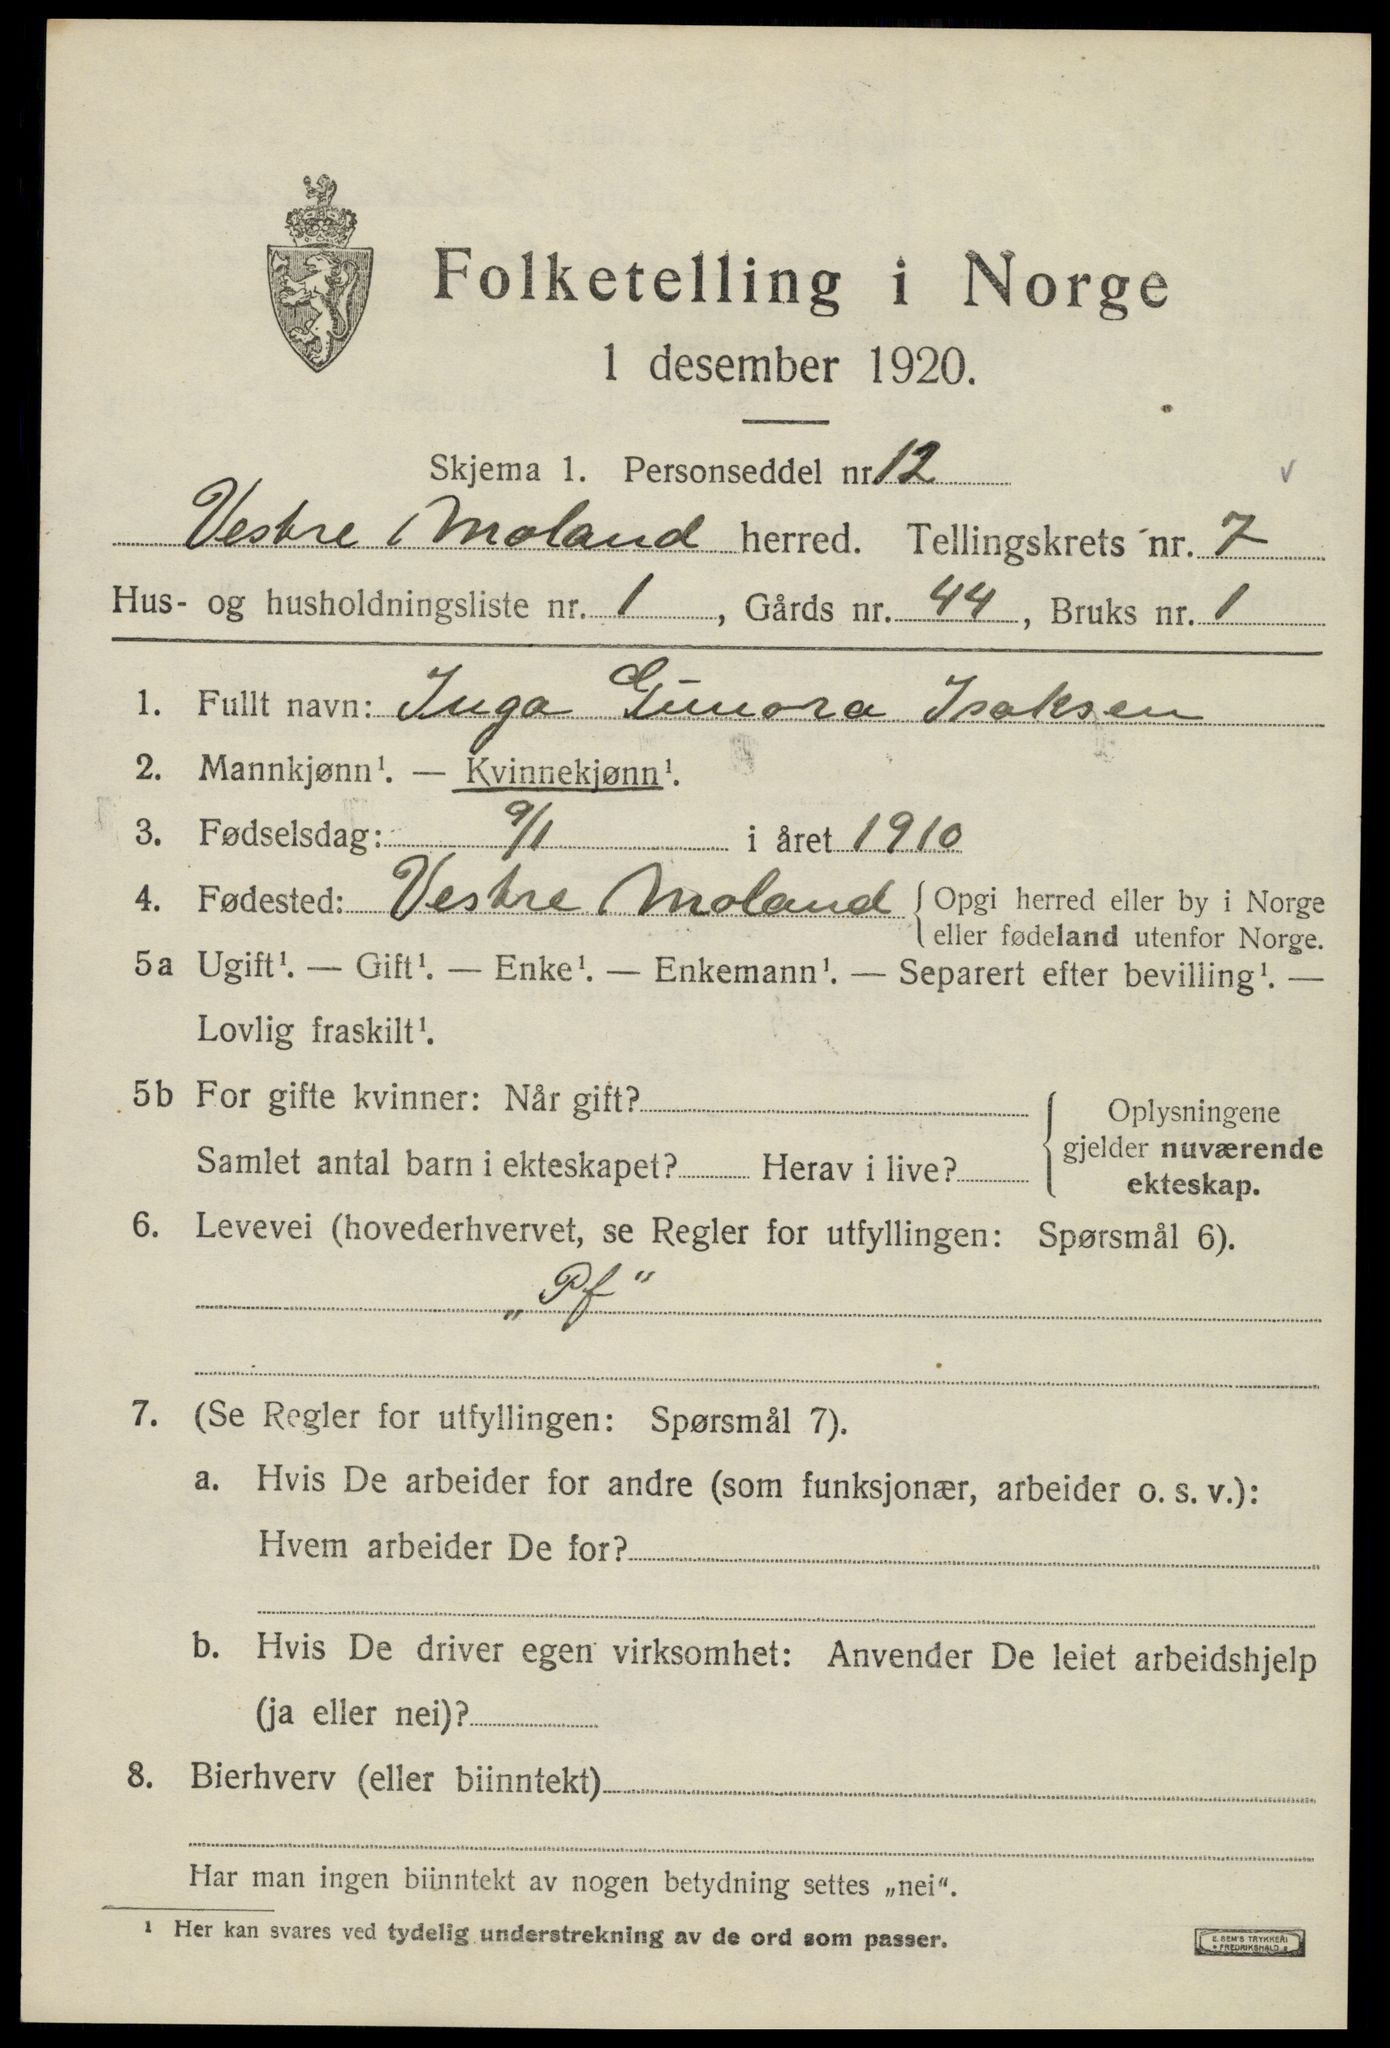 Folketelling i Norge
1 desember 1920.
Skjema 1. Personseddel nr. 12
Vestre Moland herred. Tellingskrets nr. 7
Hus- og husholdningsliste nr. 1, Gårds nr. 44, Bruks nr. 1
1. Fullt navn: Inga Gunora Isaksen
2. Mannkjønn¹. — Kvinnekjønn¹.
3. Fødselsdag: 9/1 i året 1910
4. Fødested: Vestre Moland { Opgi herred eller by i Norge
eller fødeland utenfor Norge.
5a Ugift¹. — Gift¹. — Enke¹. — Enkemann¹. — Separert efter bevilling¹. —
Lovlig fraskilt¹.
5b For gifte kvinner: Når gift?
Samlet antal barn i ekteskapet? Herav i live?
{ Oplysningene
gjelder nuværende
ekteskap.
6. Levevei (hovederhvervet, se Regler for utfyllingen: Spørsmål 6).
„Pf“
7. (Se Regler for utfyllingen: Spørsmål 7).
a. Hvis De arbeider for andre (som funksjonær, arbeider o. s. v.):
Hvem arbeider De for?
b. Hvis De driver egen virksomhet: Anvender De leiet arbeidshjelp
(ja eller nei)?
8. Bierhverv (eller biinntekt)
Har man ingen biinntekt av nogen betydning settes „nei“.
¹ Her kan svares ved tydelig understrekning av de ord som passer.
E. SEM'S TRYKKERI
FREDRIKSHALD